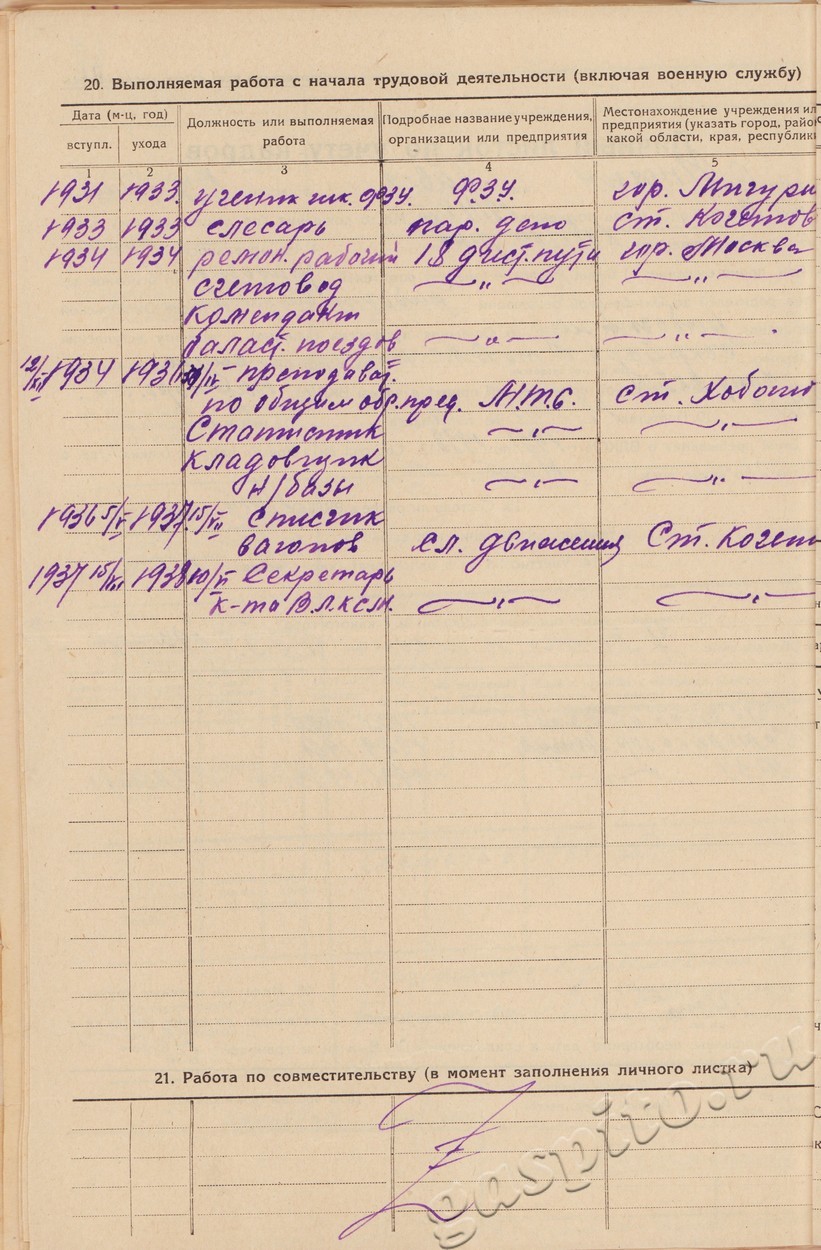 20. Выполняемая работа с начала трудовой деятельности (включая военную службу)
Дата (м-ц, год) Должность или выполняемая работа Подробнае название учреждения, организации или предприятия Местонахождение учреждения ил предприятия (указать город, район какой области, края, республики
вступл. ухода
1 2 3 4 5
1931 1933. ученик шк. ФЗУ. Ф.З.У. гор. Мичури
1933 1933 слесарь пар. депо ст. Кочетов
1934 1934 ремон. рабочий 18 дист. пути гор. Москва
счетовод —„— —„—
Комендант
баласт. поездов —„— —„—
12/XII 1934 преподават.
по общим обр. пред. М.Т.С. ст. Хобот
Статистик —„— —„—
Кладовщик
н/базы —„— —„—
1936 5/V 1937. 15/VII списчик
вагонов сл. движения Ст. Кочет
1937 15/VII 1938 10/VI Секретарь
к-та В.Л.КСМ. —„— —„—
21. Работа по совместительству (в момент заполнения личного листка)
Z
gaspito.ru